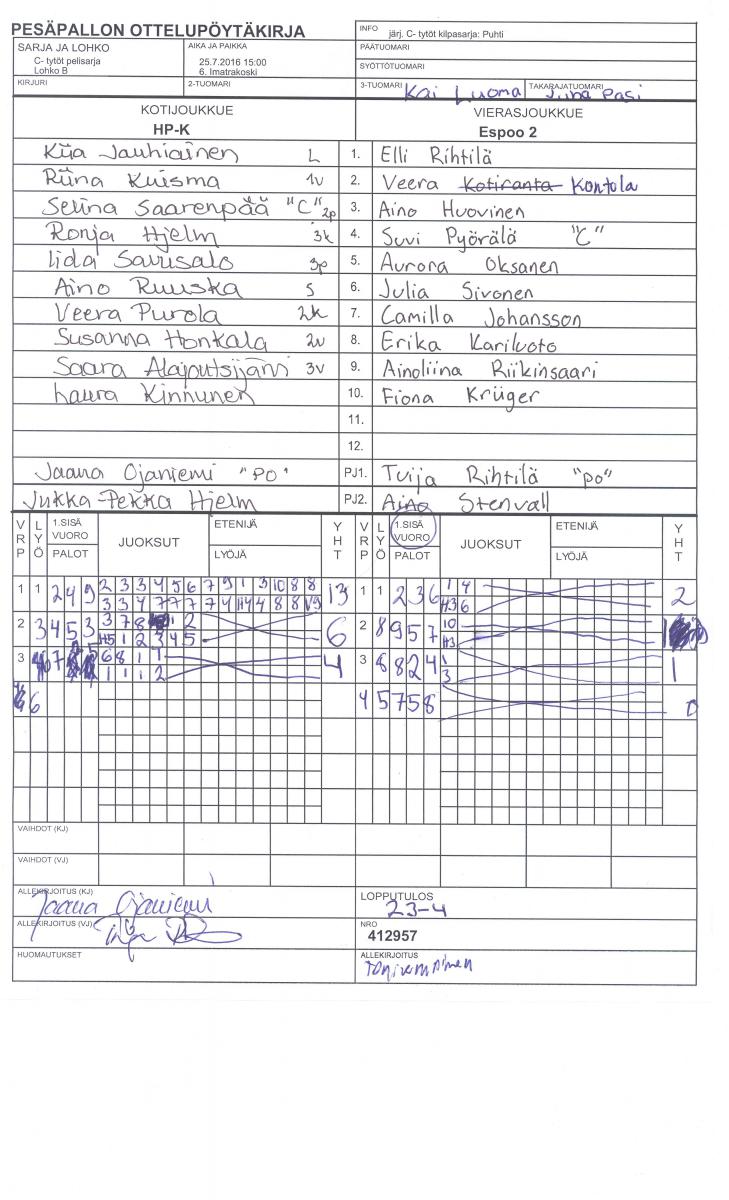 PESÄPALLON OTTELUPÖYTÄKIRJA
INFO järj. C- tytöt kilpasarja: Puhti
PÄÄTUOMARI
SYÖTTÖTUOMARI
SARJA JA LOHKO
C- tytöt pelisarja
Lohko B
AIKA JA PAIKKA
25.7.2016 15:00
6. Imatrakoski
KIRJURI
2-TUOMARI
3-TUOMARI Kai Luoma
TAKARAJATUOMARI Juha Pasi
KOTIJOUKKUE VIERASJOUKKUE
HP-K Espoo 2
Kiia Jauhiainen L 1. Elli Rihtilä
Riina Kuisma 1v 2. Veera Kotiranta Kontola
Selina Saarenpää "C" 2p 3. Aino Huovinen
Ronja Hjelm 3k 4. Suvi Pyörälä "C"
Iida Savusalo 3p 5. Aurora Oksanen
Aino Ruuska S 6. Julia Sivonen
Veera Purola 2k 7. Camilla Johansson
Susanna Honkala 2v 8. Erika Kariluoto
Saara Alajoutsijärvi 3v 9. Ainoliina Riikinsaari
Laura Kinnunen 10. Fiona Krüger
11.
12.
Jaana Ojaniemi "PO" PJ1. Tuija Rihtilä "po"
Jukka-Pekka Hjelm PJ2. Aino Stenvall
VRP LYÖ 1.SISÄ VUORO PALOT JUOKSUT ETENIJÄ LYÖJÄ YHT VRP LYÖ 1.SISÄ VUORO PALOT JUOKSUT ETENIJÄ LYÖJÄ YHT
1 1 2 4 9 2 3 3 4 5 6 7 9 1 3 10 8 8 13 1 1 2 3 6 1 4 2
3 3 4 7 7 7 7 4 4 8 8 H3 6
2 3 4 5 3 3 7 8 2 6 2 8 9 5 7 10 1
H5 1 2 3 4 5 H3
3 7 6 8 1 1 4 3 8 8 2 4 1 1
1 1 1 2 3
6 4 5 7 5 8 0
VAIHDOT (KJ)
VAIHDOT (VJ)
ALLEKIRJOITUS (KJ) Jaana Ojaniemi
LOPPUTULOS
23-4
ALLEKIRJOITUS (VJ)
NRO
412957
HUOMAUTUKSET
ALLEKIRJOITUS